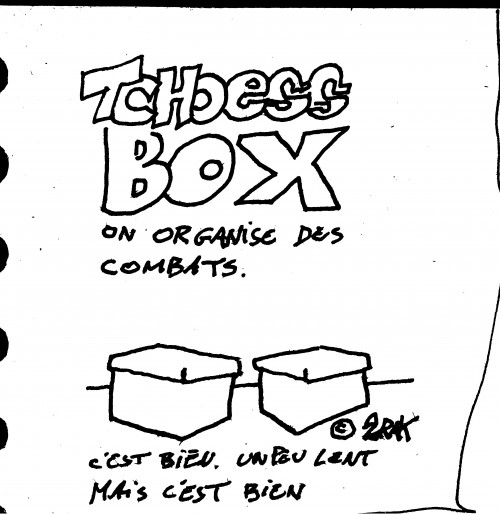 TCHOESS
BOX
ON ORGANISE DES
COMBATS.
© 2RAK
C'EST BIEN. UN PEU LENT
MAIS C'EST BIEN